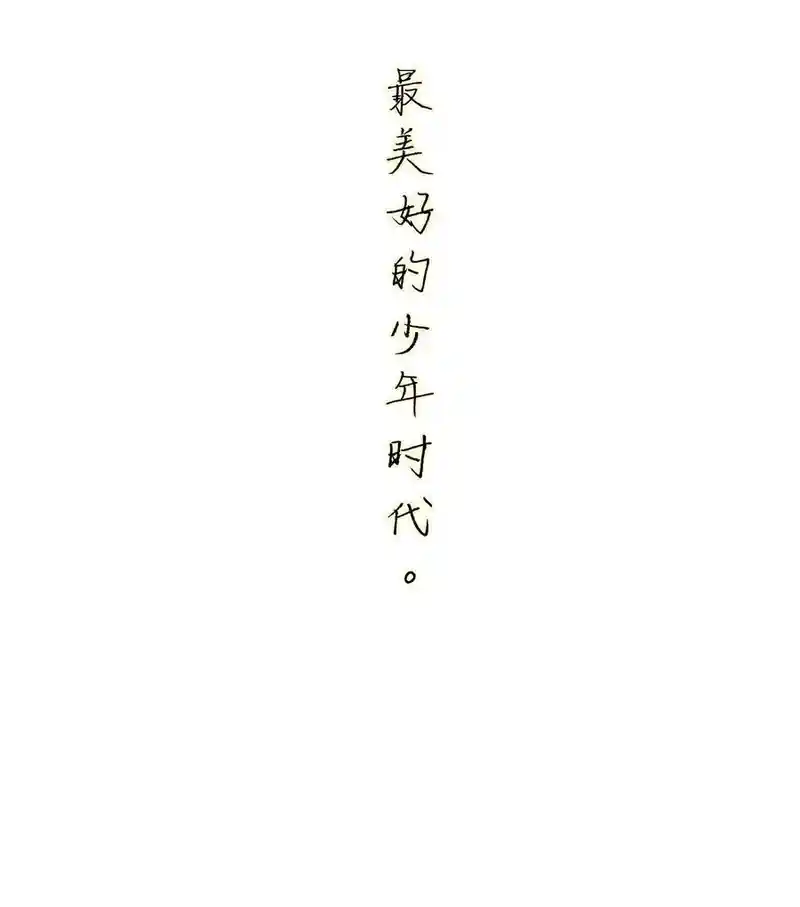 最美好的少年时代。